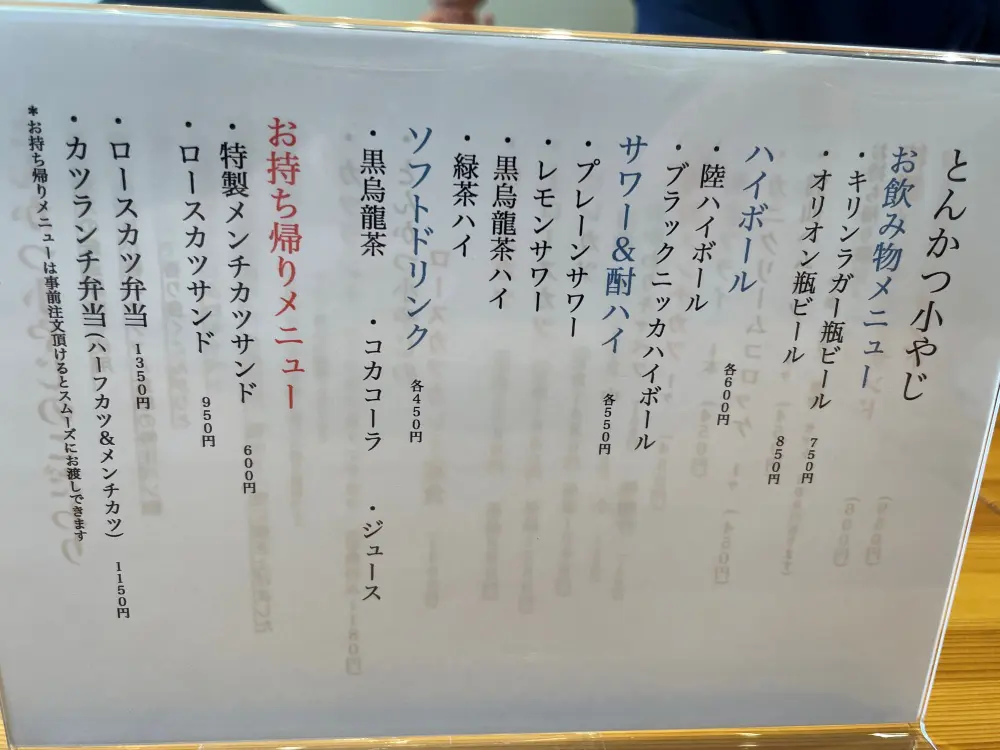 とんかつ小やじ
お飲み物メニュー
・キリンラガー瓶ビール 750円
・オリオン瓶ビール 850円
ハイボール 各600円
・陸ハイボール
・ブラックニッカハイボール
サワー&酎ハイ 各550円
・プレーンサワー
・レモンサワー
・黒烏龍茶ハイ
・緑茶ハイ
ソフトドリンク 各450円
・黒烏龍茶 ・コカコーラ ・ジュース
お持ち帰りメニュー
・特製メンチカツサンド 600円
・ロースカツサンド 950円
・ロースカツ弁当 1350円
・カツランチ弁当(ハーフカツ&メンチカツ) 1150円
*お持ち帰りメニューは事前注文頂けるとスムーズにお渡しできます